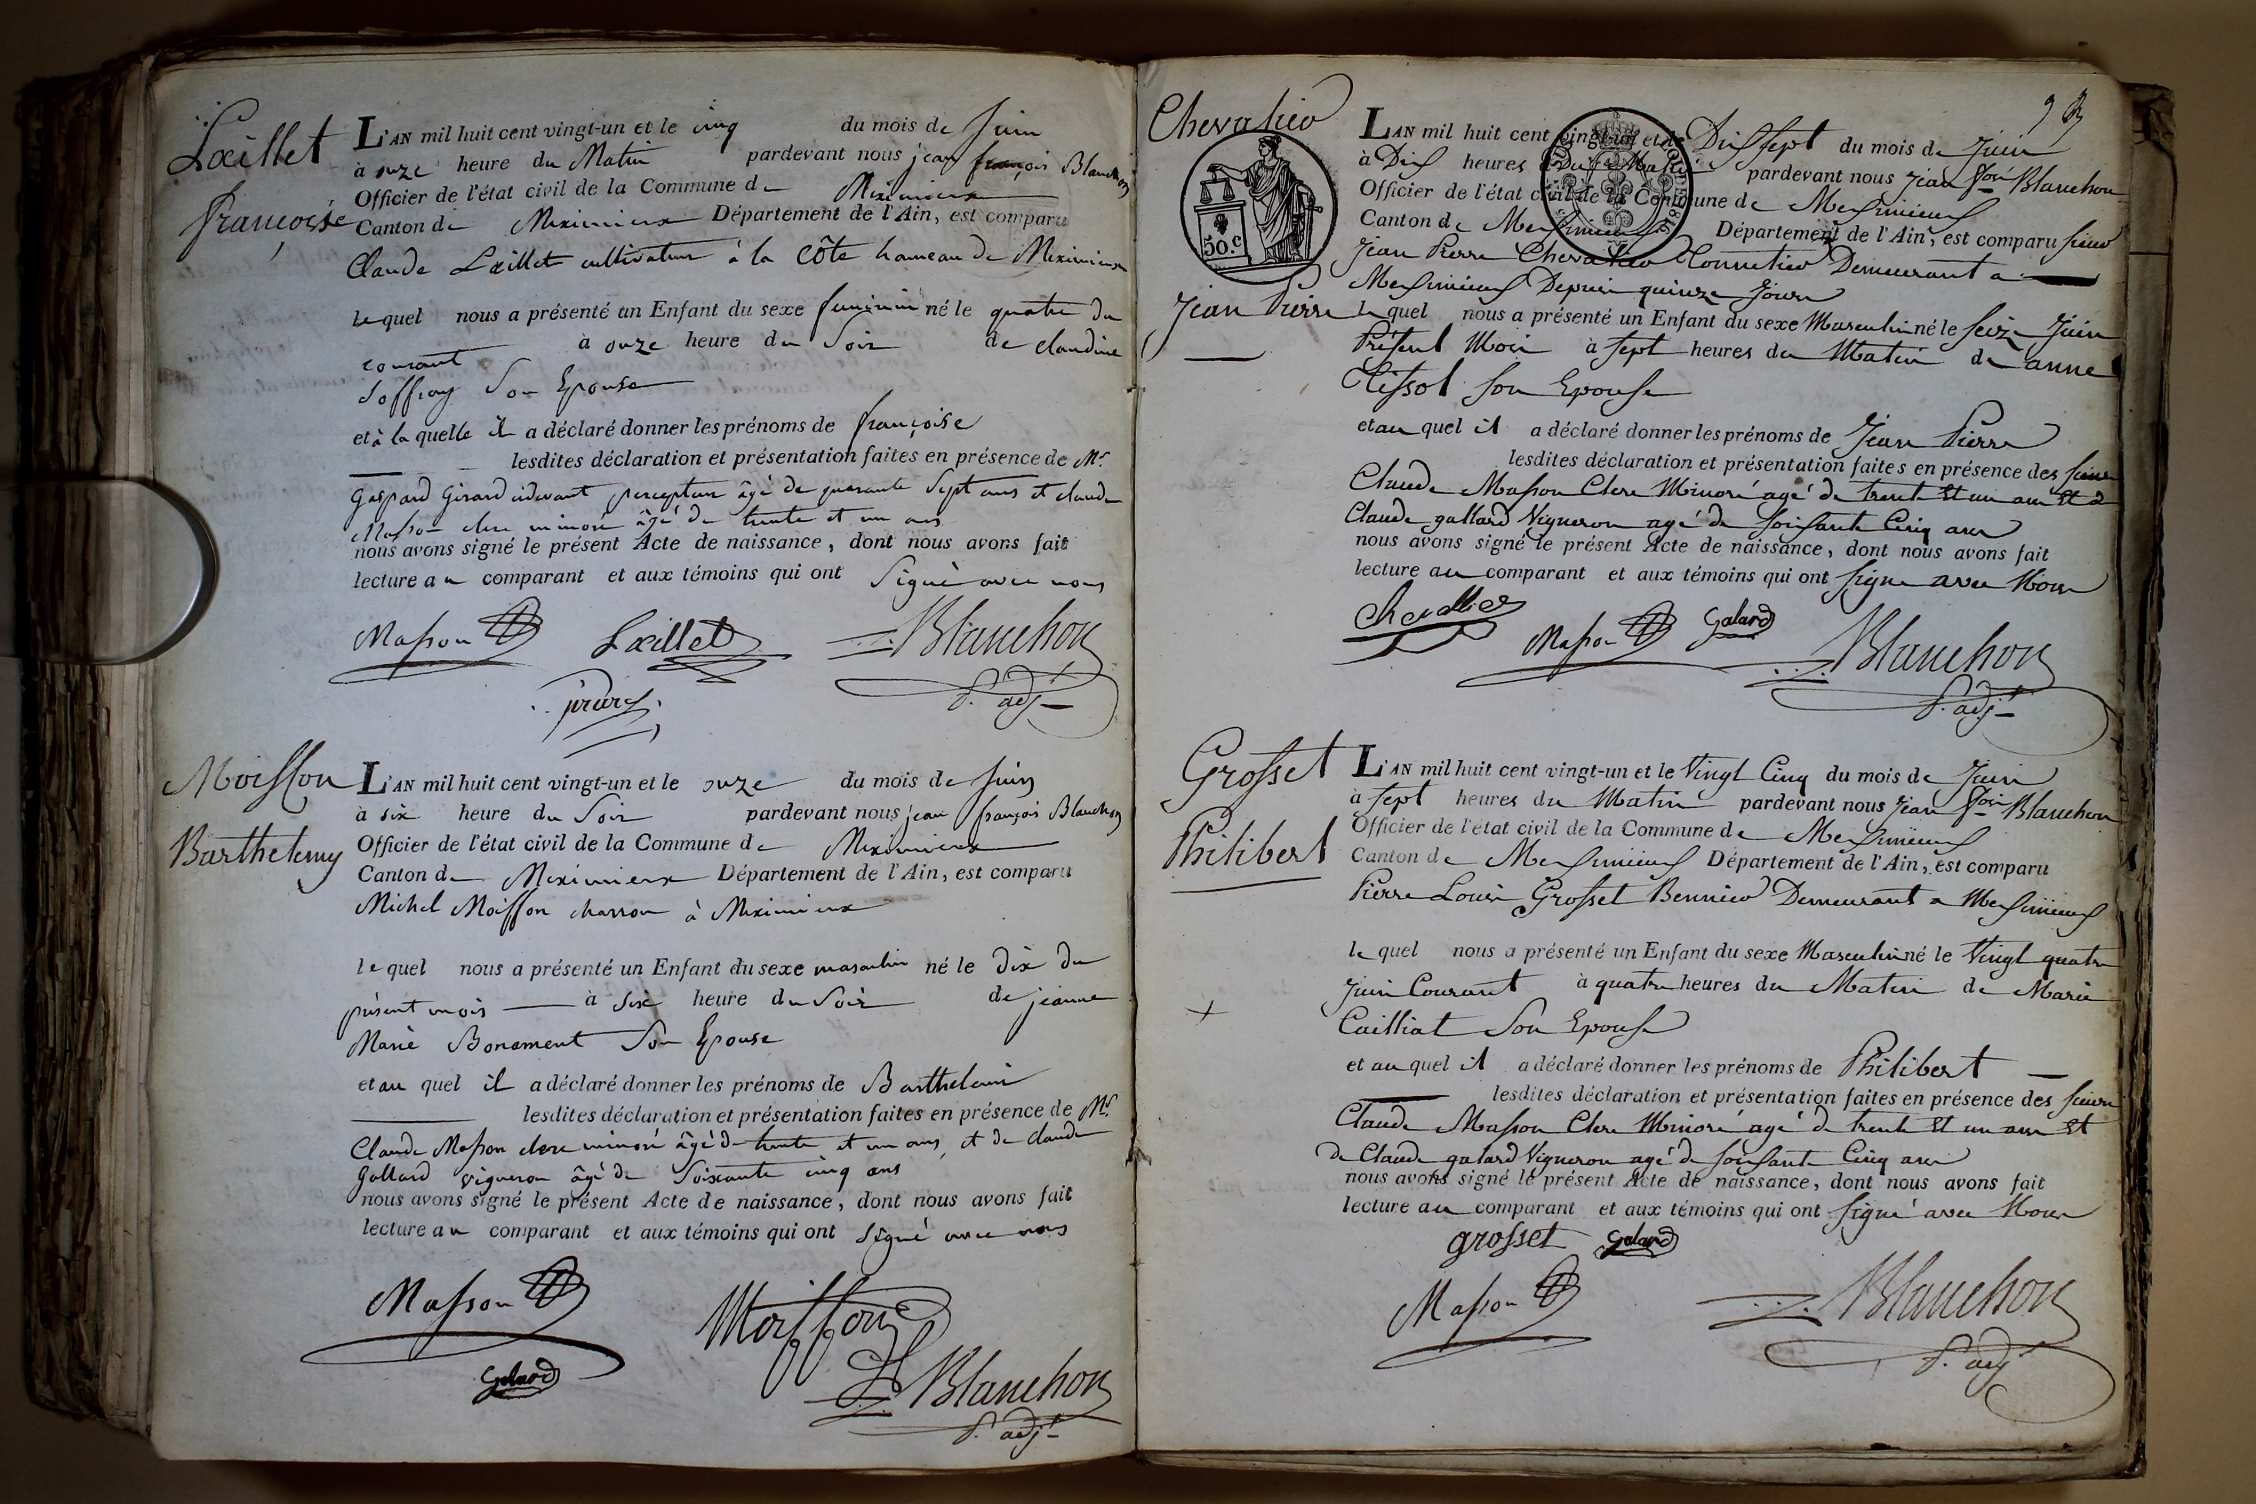 Lxillet
françoise
L'AN mil huit cent vingt-un et le cinq du mois de juin
à onze heure du Matin pardevant nous jean françois Blanchon
Officier de l'état civil de la Commune de Meximieux
Canton de Meximieux Département de l'Ain, est comparu
Claude Lxillet cultivateur à la Côte hameau de Meximieux
le quel nous a présenté un Enfant du sexe feminin né le quatre du
courant à onze heure du Soir de claudine
Soffray Son Epouse
et à la quelle il a déclaré donner les prénoms de françoise
lesdites déclaration et présentation faites en présence de Mr.
Gaspard Girard cidevant percepteur âgé de quarante Sept ans et claude
Masson clerc minoré âgé de trente et un ans
nous avons signé le présent Acte de naissance, dont nous avons fait
lecture au comparant et aux témoins qui ont Signé avec nous
Masson Lxillet Blanchon
p. adjt
Moisson
Barthelemy
L'AN mil huit cent vingt-un et le onze du mois de juin
à six heure du Soir pardevant nous jean françois Blanchon
Officier de l'état civil de la Commune de Meximieux
Canton de Meximieux Département de l'Ain, est comparu
Michel Moisson charron à Meximieux
le quel nous a présenté un Enfant du sexe masculin né le dix du
présent mois à six heure du Soir de jeanne
Marie Bonament Son Epouse
et au quel il a déclaré donner les prénoms de Barthelemi
lesdites déclaration et présentation faites en présence de Mr.
Claude Masson clerc minoré âgé de trente et un ans, et de claude
Gallard vigneron âgé de Soixante cinq ans
nous avons signé le présent Acte de naissance, dont nous avons fait
lecture au comparant et aux témoins qui ont Signé avec nous
Masson Moisson
Galard Blanchon
p. adjt
Chevalier
50.c
Jean Pierre
L'AN mil huit cent vingt-un et le Dix sept du mois de Juin
à Dix heures du Matin pardevant nous Jean foi Blanchon
Officier de l'état civil de la Commune de Meximieux
Canton de Meximieux Département de l'Ain, est comparu sieur
Jean Pierre Chevalier Tonnelier Demeurant a
Meximieux Depuis quinze Jours
le quel nous a présenté un Enfant du sexe Masculin né le Seize Juin
Présent Mois à sept heures du Matin de anne
Tissot son Epouse
et au quel il a déclaré donner les prénoms de Jean Pierre
lesdites déclaration et présentation faites en présence des sieurs
Claude Masson Clerc Minoré agé de trente et un ans et de
Claude gallard Vigneron agé de soixante Cinq ans
nous avons signé le présent Acte de naissance, dont nous avons fait
lecture au comparant et aux témoins qui ont signé avec Nous
Chevallier Masson Galard Blanchon
p. adjt
Grosset
Philibert
L'AN mil huit cent vingt-un et le Vingt Cinq du mois de Juin
à sept heures du Matin pardevant nous Jean foi Blanchon
Officier de l'état civil de la Commune de Meximieux
Canton de Meximieux Département de l'Ain, est comparu
Pierre Louis Grosset Bennier Demeurant a Meximieux
le quel nous a présenté un Enfant du sexe Masculin né le Vingt quatre
Juin Courant à quatre heures du Matin de Marie
Cailliat Son Epouse
et au quel il a déclaré donner les prénoms de Philibert
lesdites déclaration et présentation faites en présence des sieurs
Claude Masson Clerc Minoré agé de trente et un ans et
de Claude galard Vigneron agé de soixante Cinq ans
nous avons signé le présent Acte de naissance, dont nous avons fait
lecture au comparant et aux témoins qui ont signé avec Nous
grosset Galard
Masson Blanchon
p. adjt